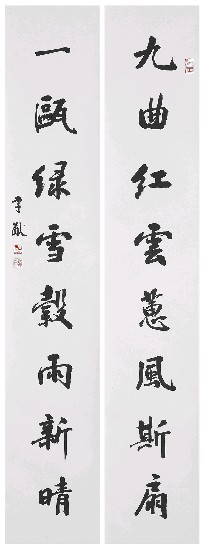 九曲红雲蕙風斯扇
一甌绿雪穀雨新晴
孚猷